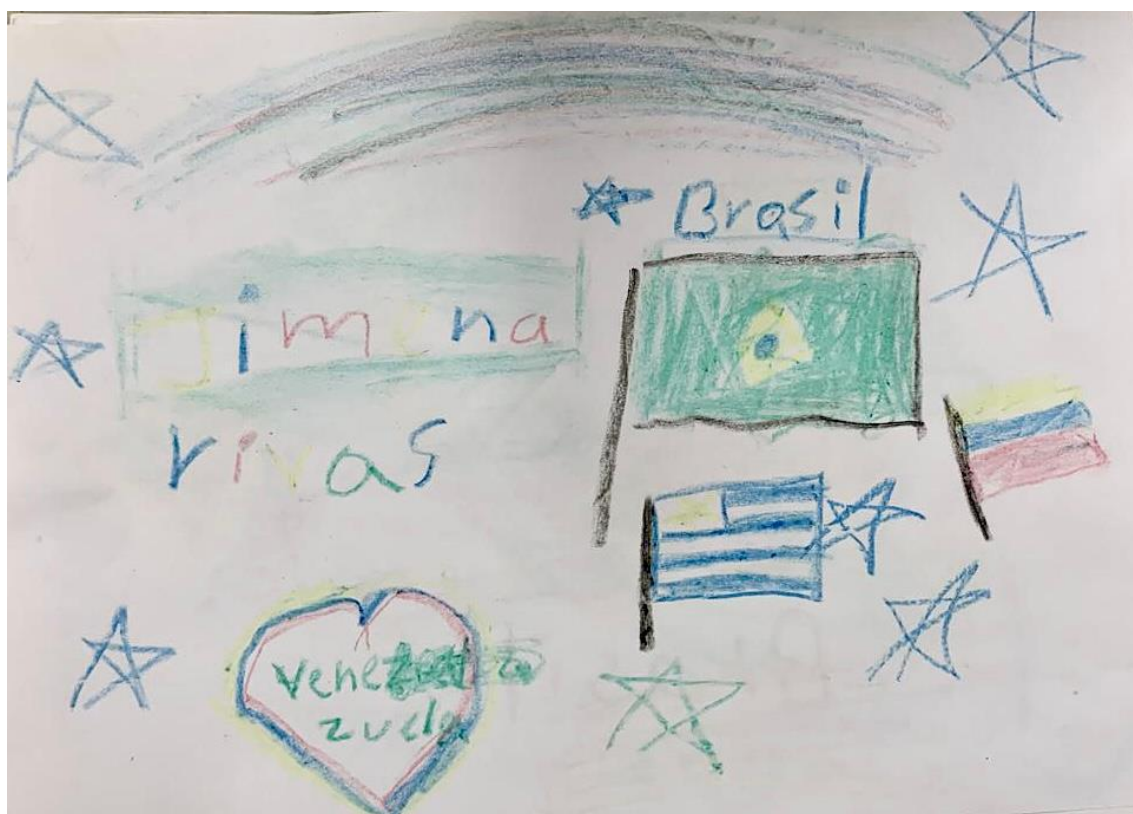 Brasil
jimena
rivas
Vene
zuela